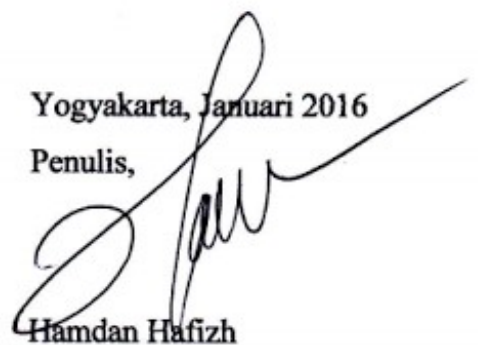 Yogyakarta, Januari 2016
Penulis,
Hamdan Hafizh